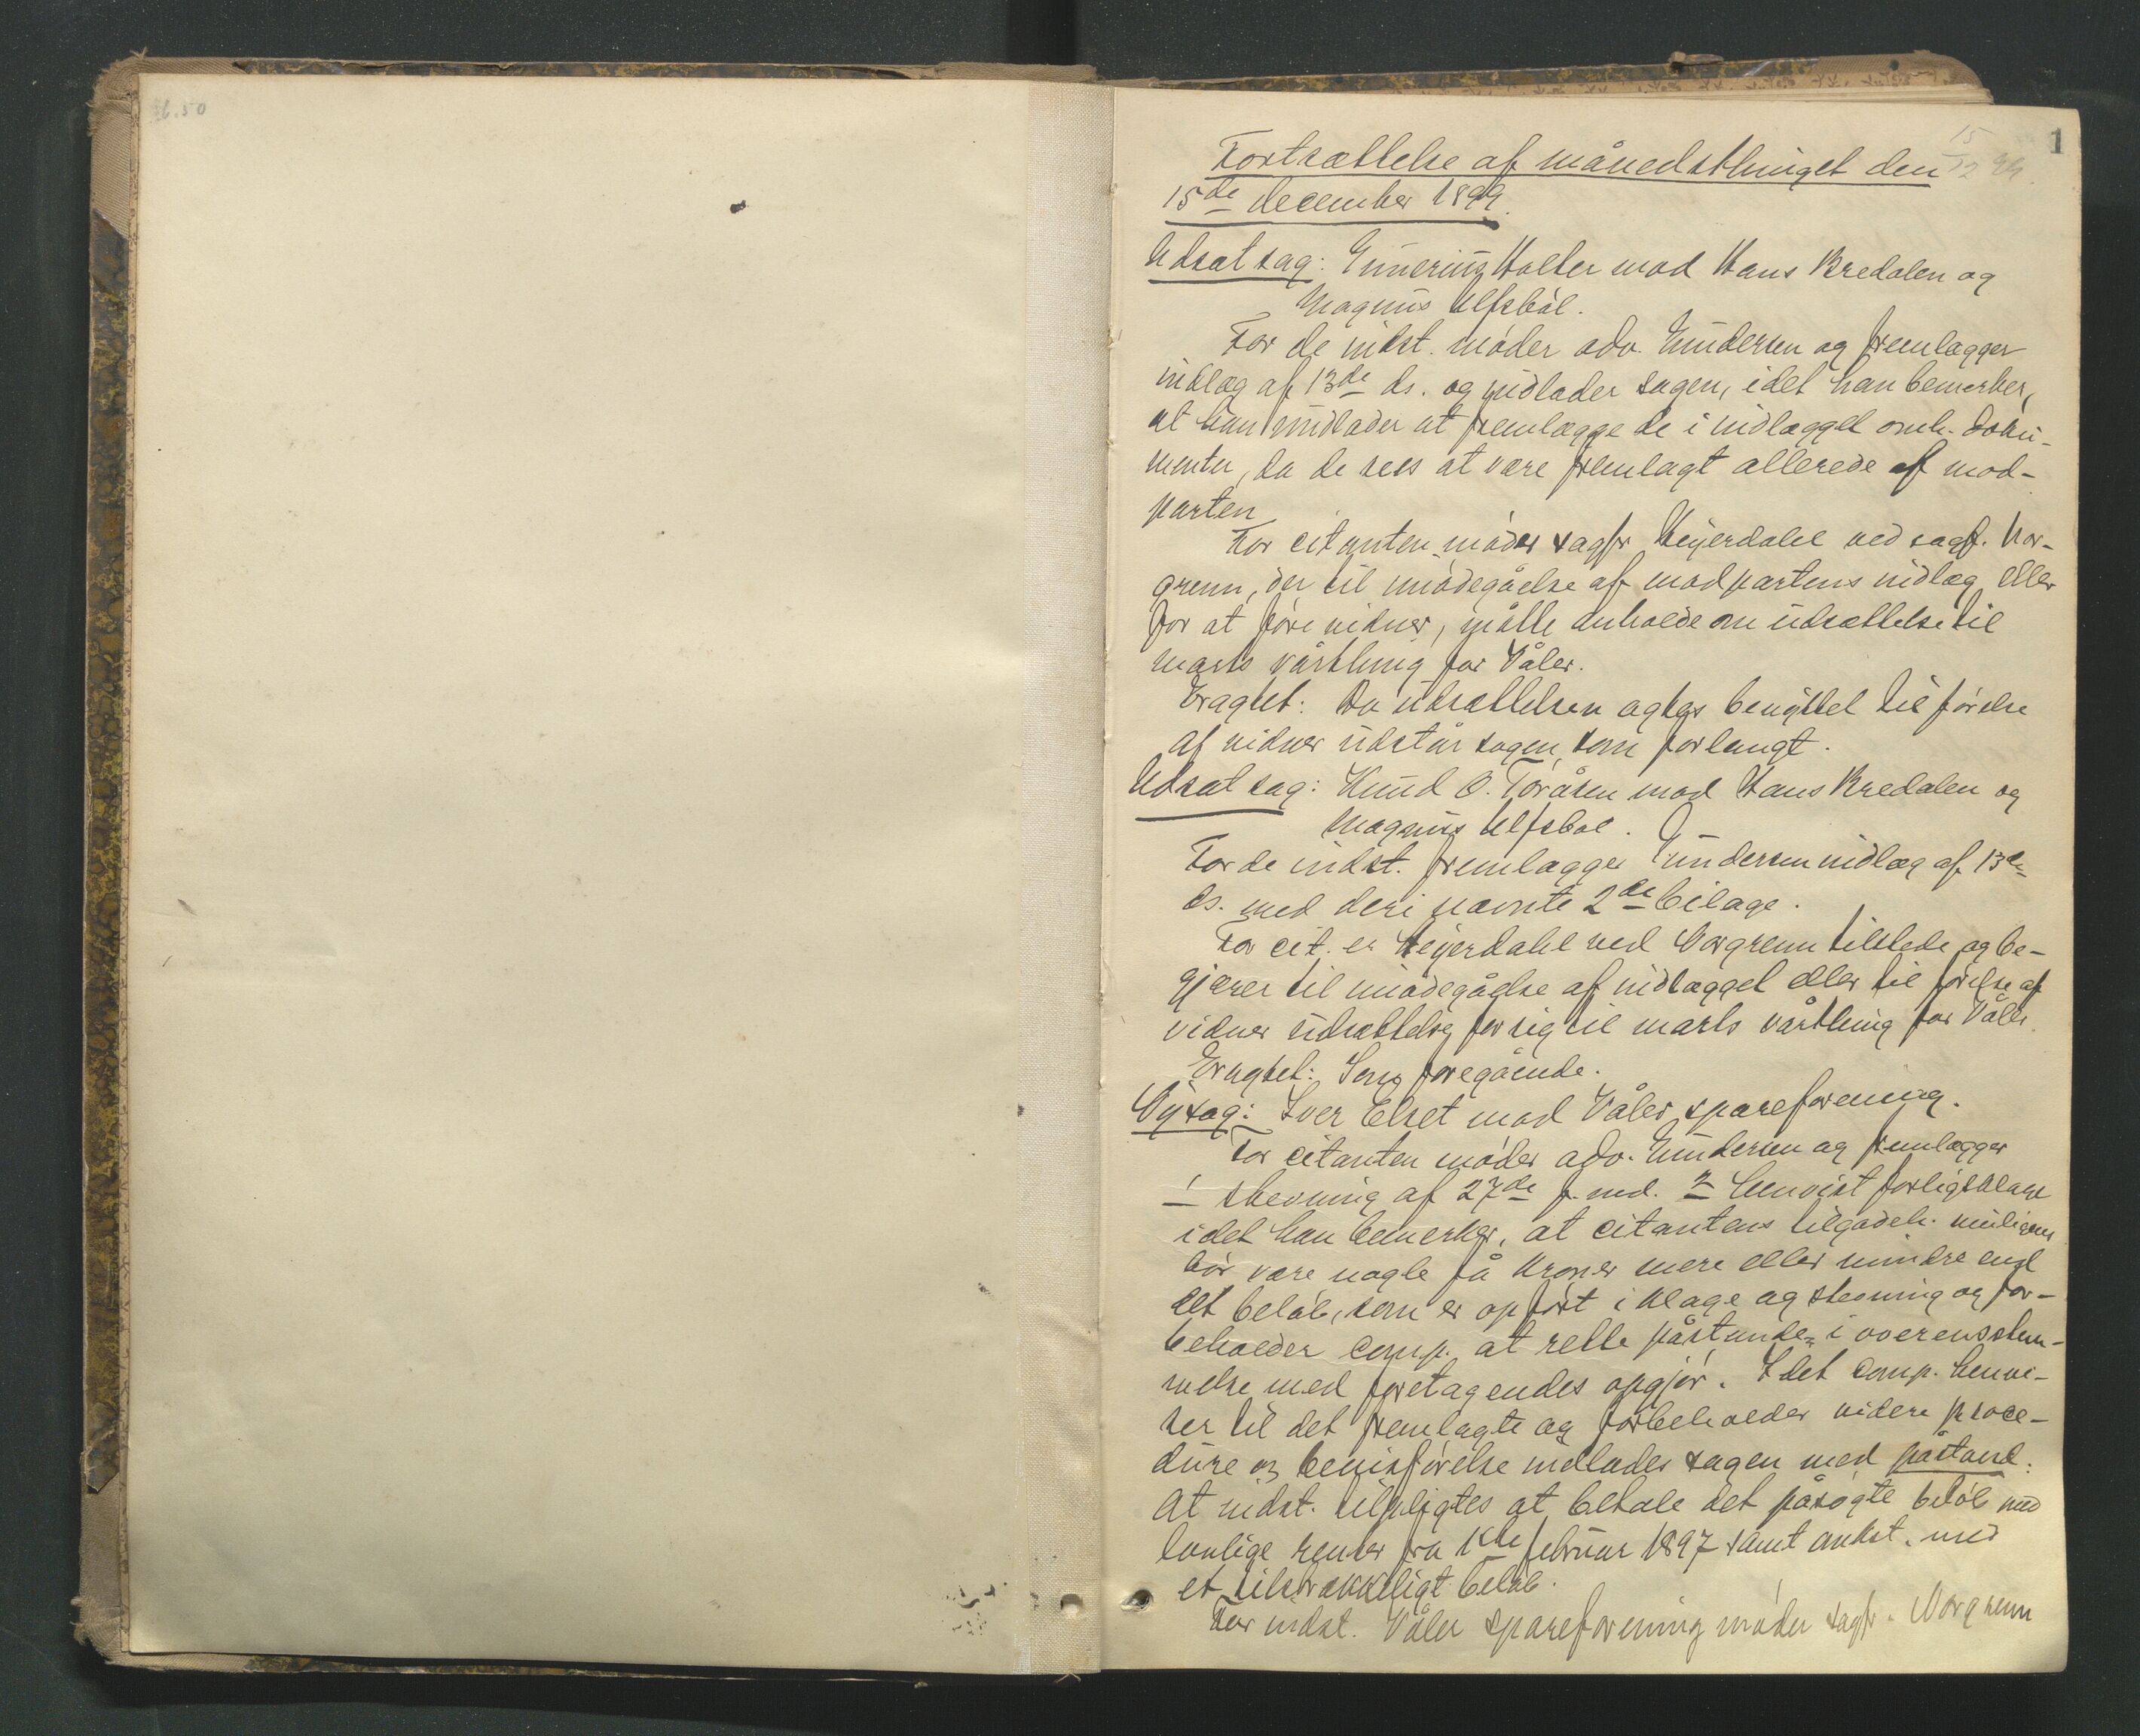 1
15
12 99.
Fortsættelse af månedsthinget den
15de december 1899.
Udsat sag: Gunerius Holter mod Hans Bredalen og
Magnus Ulfsböl.
For de indst. möder adv. Gundersen og fremlægger
indlæg af 13de ds. og indlader sagen, idet han bemerker,
at han undlader at fremlægge de i indlægget omh. doku-
menter, da de sees at være fremlagt allerede af mod-
parten
For citanten möder sagfr Heyerdahl ved sagf. Nor-
grenn, der til imödegåelse af modpartens indlæg eller
for at före vidner, måtte anholde om udsættelse til
marts vårthing for Våler.
Eragtet: Da udsættelsen agtes benyttet til förelse
af vidner udstår sagen som forlangt.
Udsat sag: Knud O. Toråsen mod Hans Bredalen og
Magnus Ulfsböl.
For de indst. fremlægger Gundersen indlæg af 13de
ds. med deri nævnte 2de bilage.
For cit. er Heyerdahl ved Norgrenn tilstede og be-
gjærer til imödegåelse af indlægget eller til förelse af
vidner udsættelse for sig til marts vårthing for Våler.
Eragtet: Som foregående.
Ny sag: Iver Elset mod Våler spareforening.
For citanten möder adv. Gundersen og fremlægger
1 stevning af 27de f. md. 2 henvist forligsklage
idet han bemerker, at citantens tilgodeh. muligens
bör være nogle få kroner mere eller mindre end
det belöb, som er opfört i klage og stevning og for-
beholder comp. at rette påstanden i overensstem-
melse med foretagendes opgjör. Idet comp. henvi-
ser til det fremlagte og forbeholder videre proce-
dure og bevisförelse indlades sagen med påstand:
At indst. tilpligtes at betale det påsögte belöb med
lovlige renter fra 1ste februar 1897 samt omkst. med
et tilstrækkeligt belöb.
For indst. Våler spareforening möder sagfr. Norgrenn